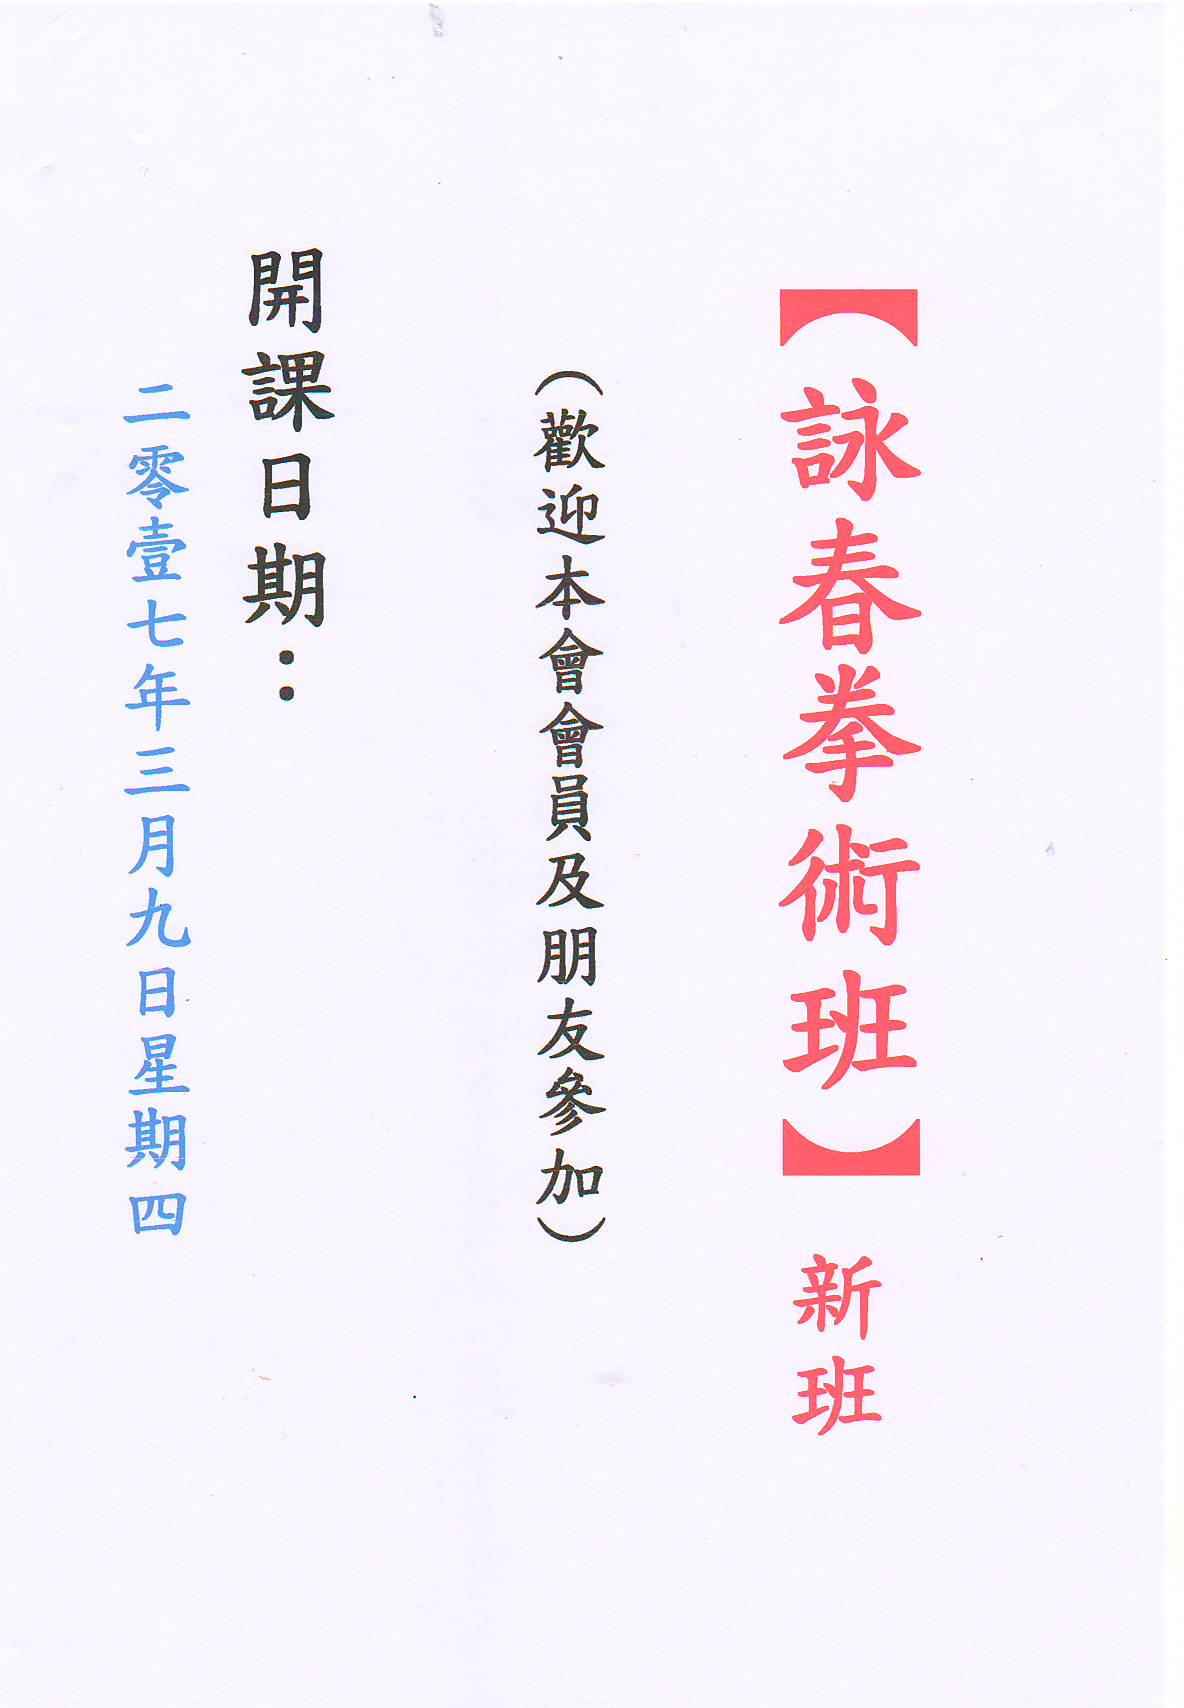 【詠春拳術班】新班
（歡迎本會會員及朋友參加）
開課日期：
二零壹七年三月九日星期四